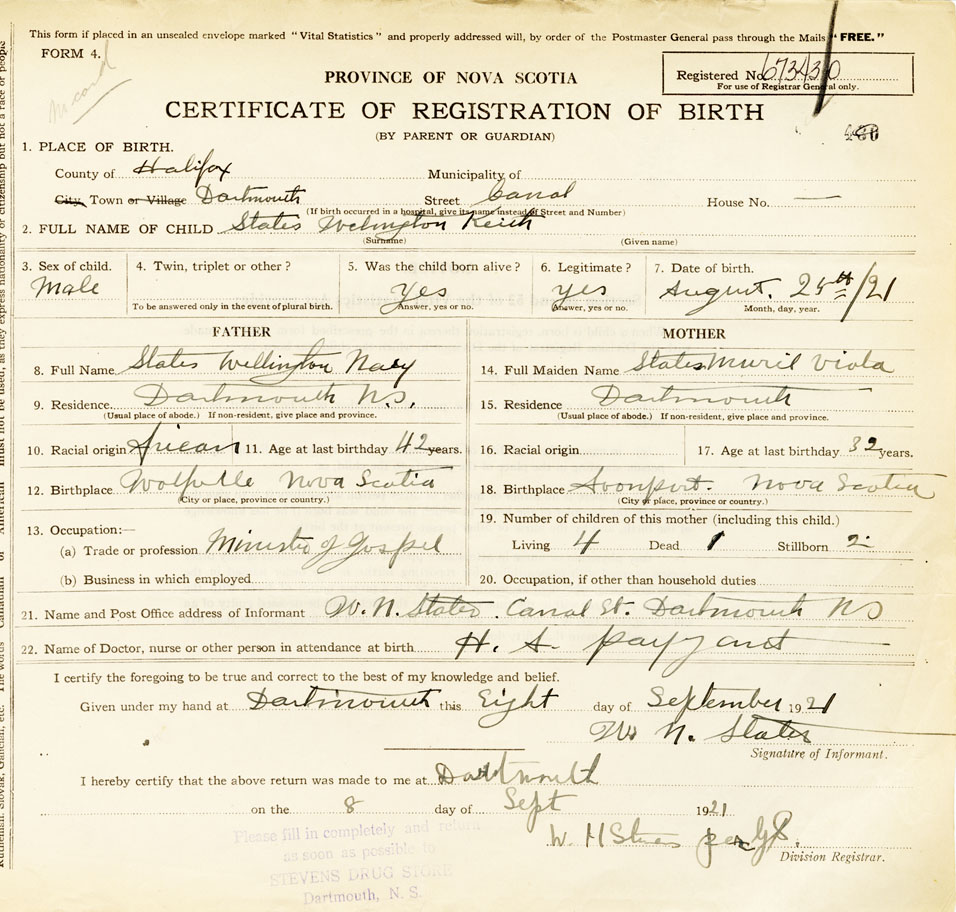 This form if placed in an unsealed envelope marked "Vital Statistics" and properly addressed will, by order of the Postmaster General pass through the Mails "FREE."
FORM 4.
Registered No. 673430
For use of Registrar General only.
PROVINCE OF NOVA SCOTIA
CERTIFICATE OF REGISTRATION OF BIRTH
(BY PARENT OR GUARDIAN)
1. PLACE OF BIRTH.
County of Halifax Municipality of
City, Town or Village Dartmouth Street Canal House No. —
(If birth occurred in a hospital, give its name instead of Street and Number)
2. FULL NAME OF CHILD States Welington Keith
(Surname) (Given name)
3. Sex of child. 4. Twin, triplet or other? 5. Was the child born alive? 6. Legitimate? 7. Date of birth.
Male yes yes August. /21
To be answered only in the event of plural birth. Answer, yes or no. Answer, yes or no. Month, day, year.
FATHER MOTHER
8. Full Name States Wellington Nary 14. Full Maiden Name States Muril Viola
9. Residence Dartmouth N.S. 15. Residence Dartmouth
(Usual place of abode.) If non-resident, give place and province. (Usual place of abode.) If non-resident, give place and province.
10. Racial origin African 11. Age at last birthday 42 years. 16. Racial origin 17. Age at last birthday 32 years.
12. Birthplace Wolfville Nova Scotia 18. Birthplace Avonport. Nova Scotia
(City or place, province or country.) (City or place, province or country.)
13. Occupation:— 19. Number of children of this mother (including this child.)
(a) Trade or profession Minister of Gospel Living 4 Dead 1 Stillborn 2
(b) Business in which employed 20. Occupation, if other than household duties
21. Name and Post Office address of Informant W. N. States. Canal St. Dartmouth NS
22. Name of Doctor, nurse or other person in attendance at birth H. A. Payzant
I certify the foregoing to be true and correct to the best of my knowledge and belief.
Given under my hand at Dartmouth this Eight day of September 1921
W. N. States
Signature of Informant.
I hereby certify that the above return was made to me at Dartmouth
on the 8 day of Sept 1921
W. H Stevens per
Division Registrar.
Please fill in completely and return
as soon as possible to
STEVENS DRUG STORE
Dartmouth, N. S.